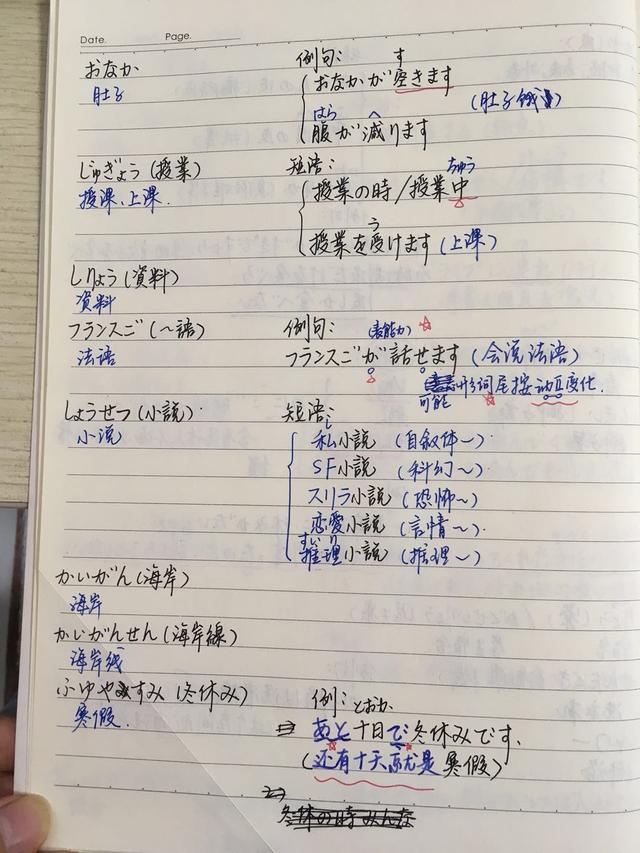 Date. Page.
おなか
肚子
例句：
す
おなかが空きます
(肚子饿)
はら へ
腹が減ります
じゅぎょう(授業)
授课、上课.
短语：
ちゅう
授業の時/授業中
う
授業を受けます(上课)
しりょう(資料)
资料
フランスゴ(～語)
法语
例句：
(表能力)
フランスゴが話せます(会说法语)
可能形词尾按动Ⅱ变化.
しょうせつ(小説)
小说
短语：
し
私小説(自叙体～)
SF小説(科幻～)
スリラ小説(恐怖～)
恋愛小説(言情～)
すいり
推理小説(推理～)
かいがん(海岸)
海岸
かいがんせん(海岸線)
海岸线
ふゆやすみ(冬休み)
寒假.
例：
とおか
⇒ あと十日で冬休みです.
(还有十天就是寒假)
⇒
冬休の時みんな